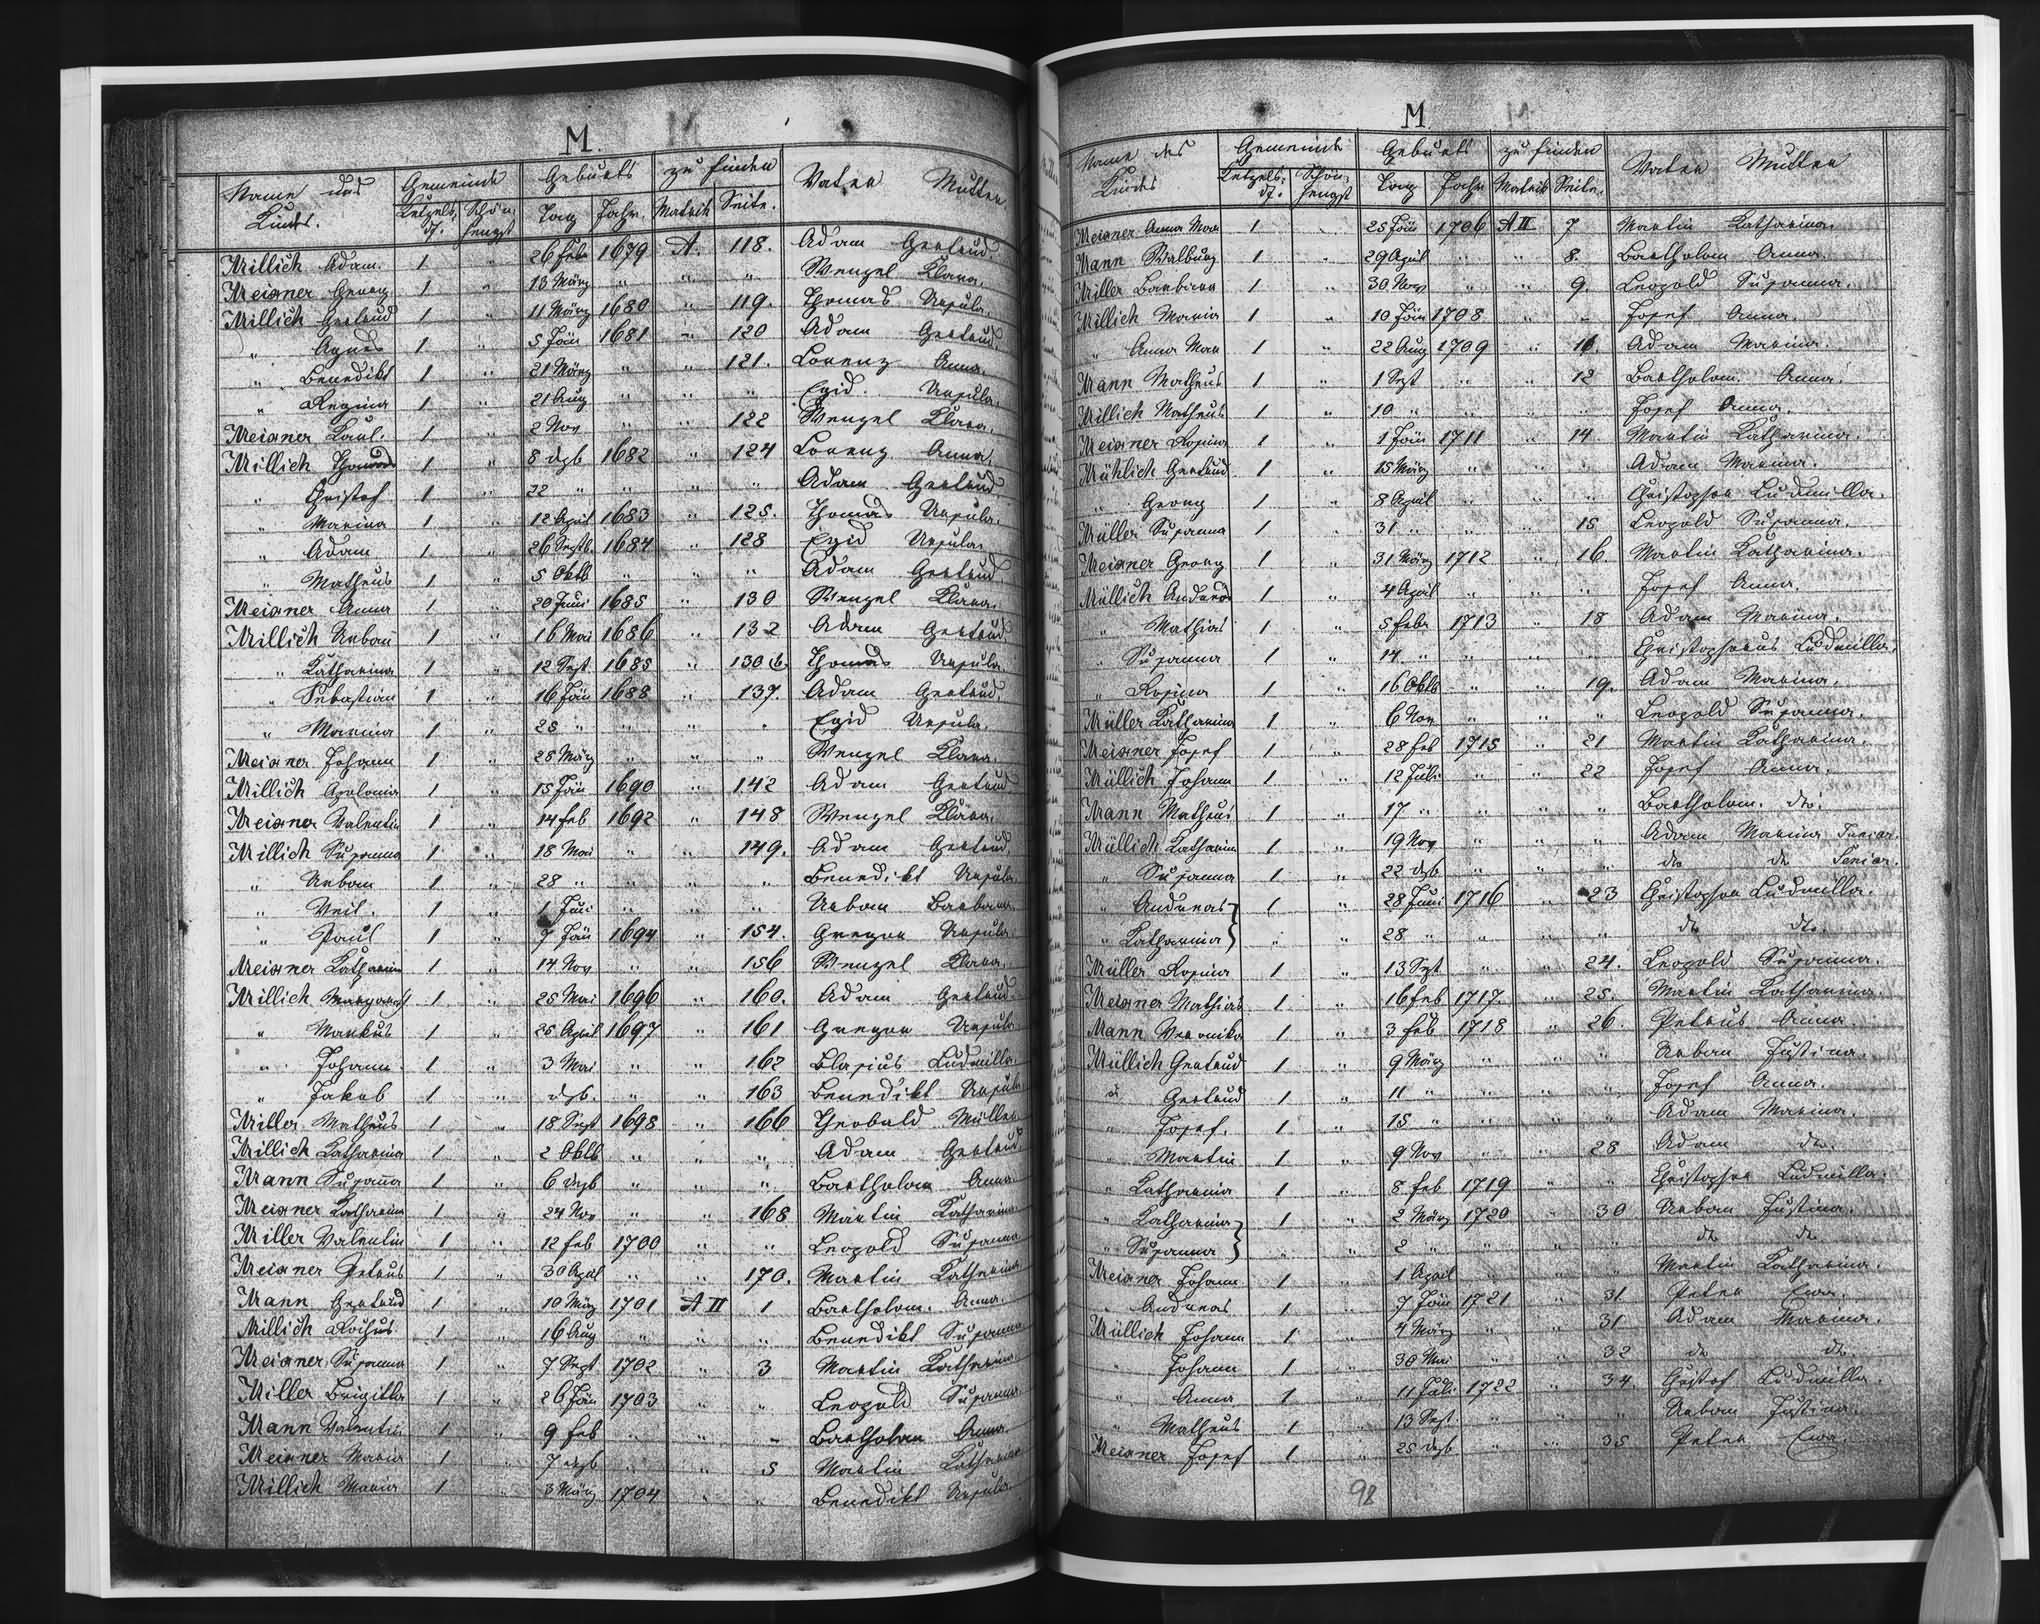 M.
Name des Kindes. Gemeinde Ketzelsdf. Schönhengst Geburts Tag Jahr. zu finden Matrik Seite. Vater Mutter.
Millich Adam. 1 " 26 Feb 1679 A. 118. Adam Gertrud
Meixner Georg 1 " 13 März " " " Wenzel Klara.
Millich Gertrud 1 " 11 März 1680 " 119. Thomas Ursula.
" Agnes 1 " 5 Jän 1681 " 120 Adam Gertrud.
" Benedikt 1 " 21 März " " 121. Lorenz Anna.
" Regina 1 " 21 Aug " " " Egid. Ursula.
Meixner Paul. 1 " 2 Nov " " 122 Wenzel Klara.
Millich Thomas 1 " 8 dzb 1682 " 124 Lorenz Anna.
" Christof 1 " 22 " " " " Adam Gertrud.
" Marina 1 " 12 April 1683 " 125. Thomas Ursula.
" Adam 1 " 26 Septb. 1684 " 128 Egid Ursula.
" Matheus 1 " 5 Oktb " " " Adam Gertrud
Meixner Anna 1 " 20 Juni 1685 " 130 Wenzel Klara.
Millich Urban 1 " 16 Mai 1686 " 132 Adam Gertrud
" Katharina 1 " 12 Sept 1685 " 130 b. Thomas Ursula
" Sebastian 1 " 16 Jän 1688 " 137. Adam Gertrud.
" Marina 1 " 25 " " " " Egid Ursula.
Meixner Johann 1 " 25 März " " " Wenzel Klara.
Millich Apolonia 1 " 15 Jän 1690 " 142 Adam Gertrud
Meixner Valentin 1 " 14 feb 1692 " 148 Wenzel Klara.
Millich Susanna 1 " 18 Mai " " 149. Adam Gertrud.
" Urban 1 " 28 " " " " Benedikt Ursula.
" Veit. 1 " 1 Juni " " " Urban Barbara
" Paul 1 " 7 Jän 1694 " 154. Gregor Ursula.
Meixner Katharina 1 " 14 Nov " " 156 Wenzel Klara.
Millich 1 " 25 Mai 1696 " 160. Adam Gertrud.
" Markus 1 " 25 April 1697 " 161 Gregor Ursula
" Johann. 1 " 3 Mai " " 162 Blasius Ludmilla
" Jakob 1 " dzb. " " 163 Benedikt Ursula
Miller Matheus 1 " 18 Sept 1698 " 166 Theobald Müller
Millich Katharina 1 " 2 Oktb " " " Adam Gertrud
Mann Susanna 1 " 6 dezb " " " Bartholom Anna
Meixner Katharina 1 " 24 Nov " " 168 Martin Katharina
Miller Valentin 1 " 12 feb 1700 " " Leopold Susanna
Meixner Petrus 1 " 30 April " " 170. Martin Katharina
Mann Gertrud 1 " 10 März 1701 A II 1 Bartholom. Anna.
Millich Rochus 1 " 16 Aug " " " Benedikt Susanna
Meixner Susanna 1 " 7 Sept 1702 " 3 Martin Katharina
Miller Brigitta 1 " 26 Jän 1703 " " Leopold Susanna
Mann Valentin 1 " 9 feb " " " Bartholom Anna.
Meixner Maria 1 " 7 dzb " " 5 Martin Katharina
Millich Maria 1 " 3 März 1704 " " Benedikt Ursula
M.
Name des Kindes Gemeinde Ketzelsdf. Schönhengst Geburts Tag Jahr zu finden Matrik Seite. Vater Mutter
Meixner Anna Mar 1 " 25 Jän 1706 A II 7 Martin Katharina.
Mann Walburg 1 " 29 April " " 8. Bartholom Anna.
Miller Barbara 1 " 30 Nov " " 9. Leopold Susanna.
Millich Maria 1 " 10 Jän 1708 " " Josef Anna.
" Anna Mar 1 " 22 Aug 1709 " Adam Marina.
Mann Matheus 1 " 1 Sept " " 12 Bartholom. Anna.
Millich Matheus 1 " 10 " " " " Josef Anna.
Meixner Rosina 1 " 1 Jän 1711 " 14 Martin Katharina.
Mühlich Gertrud 1 " 15 März " " " Adam Marina.
" Georg 1 " 8 April " " " Christopher Ludmilla.
Müller Susanna 1 " 31 " " " 15 Leopold Susanna.
Meixner Georg 1 " 31 März 1712 " 16. Martin Katharina.
Müllich Andreas 1 " 4 April " " " Josef Anna.
" Mathias 1 " 5 febr 1713 " 18 Adam Marina.
" Susanna 1 " 14 " " " " Christophorus Ludmilla.
" Rosina 1 " 16 Oktb " " 19. Adam Marina.
Müller Katharina 1 " 6 Nov " " " Leopold Susanna.
Meixner Josef 1 " 28 feb 1715 " 21 Martin Katharina.
Müllich Johann 1 " 12 Juli " " 22 Josef Anna.
Mann Matheus 1 " 17 " " " " Bartholom. dto.
Müllich Katharina 1 " 19 Nov " " " Adam Marina Junior.
" Susanna 1 " 22 dzb " " " do do Senior.
" Andreas } 1 " 28 Juni 1716 " 23 Christophor Ludmilla.
" Katharina } " " 28 " " " " do do.
Müller Rosina 1 " 13 Sept " " 24. Leopold Susanna.
Meixner Mathias 1 " 16 feb 1717. " 25. Martin Katharina.
Mann Veronika 1 " 3 feb 1718 " 26. Petrus Anna.
Müllich Gertrud 1 " 9 März " " " Urban Justina.
" Gertrud 1 " 11 " " " " Josef Anna.
" Josef. 1 " 15 " " " " Adam Marina.
" Martin 1 " 9 Nov " " 28 Adam do.
" Katharina 1 " 8 feb 1719 " " Christopher Ludmilla.
" Katharina } 1 " 2 März 1720 " 30 Urban Justina.
" Susanna } " " 2 " " " " do do.
Meixner Johann 1 " 1 April " " " Martin Katharina.
" Andreas 1 " 7 Jän 1721 " 31 Peter Eva.
Müllich Johann 1 " 4 März " " 31 Adam Marina.
" Johann 1 " 30 Mai " " 32 do do.
" Anna 1 " 11 Juli 1722 " 34. Christof Ludmilla.
" Matheus 1 " 13 Sept. " " " Urban Justina.
Meixner Josef 1 " 25 dzb " " 35 Peter Eva.
98